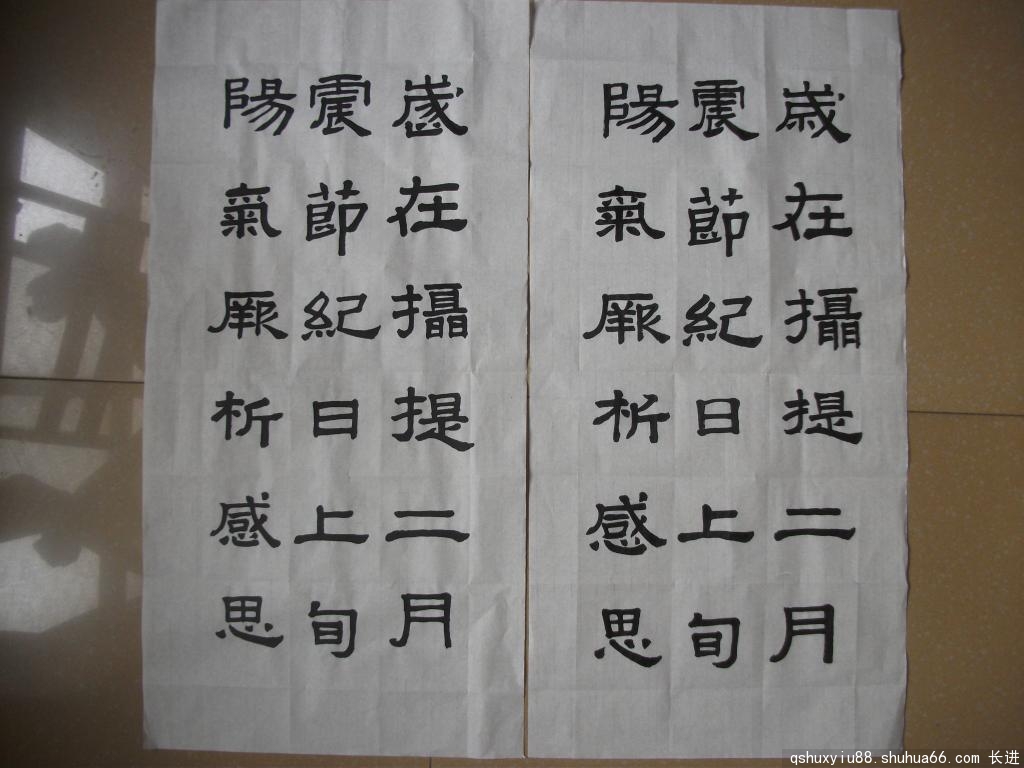 歲在攝提二月
震節紀日上旬
陽氣厥析感思
歲在攝提二月
震節紀日上旬
陽氣厥析感思
qshuxyiu88.shuhua66.com 长进